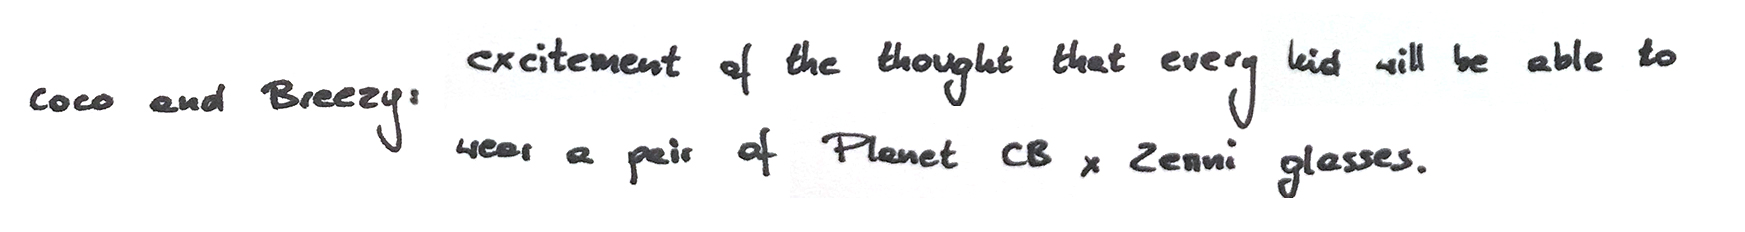 Coco and Breezy:
excitement of the thought that every kid will be able to
wear a pair of Planet CB x Zenni glasses.